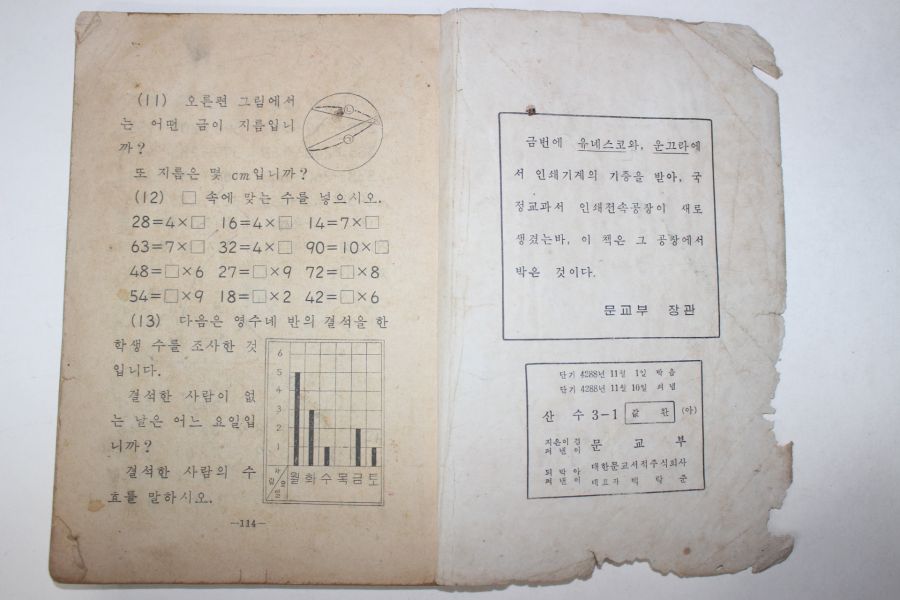 (11) 오른편 그림에서
는 어떤 금이 지름입니
까?
또 지름은 몇 cm입니까?
(12) □ 속에 맞는 수를 넣으시오.
28=4×□ 16=4×□ 14=7×□
63=7×□ 32=4×□ 90=10×□
48=□×6 27=□×9 72=□×8
54=□×9 18=□×2 42=□×6
(13) 다음은 영수네 반의 결석을 한
학생 수를 조사한 것
입니다.
결석한 사람이 없
는 날은 어느 요일입
니까?
결석한 사람의 수
효를 말하시오.
6
5
4
3
2
1
월 화 수 목 금 토
—114—
금번에 유네스코와, 운끄라에
서 인쇄기계의 기증을 받아, 국
정교과서 인쇄전속공장이 새로
생겼는바, 이 책은 그 공장에서
박은 것이다.
문교부 장관
단기 4288년 11월 1일 박음
단기 4288년 11월 10일 펴냄
산 수 3-1 값 환 (아)
지은이 겸
펴낸이 문 교 부
되박아
펴낸이 대한문교서적주식회사
대표자